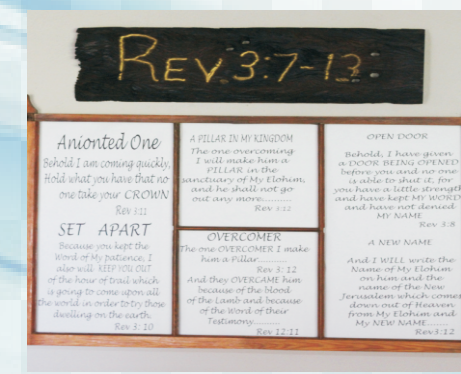 REV. 3:7-13
Anionted One
Behold I am coming quickly,
Hold what you have that no
one take your CROWN
Rev 3:11
SET APART
Because you kept the
Word of My patience, I
also will KEEP YOU OUT
of the hour of trail which
is going to come upon all
the world in order to try those
dwelling on the earth.
Rev 3: 10
A PILLAR IN MY KINGDOM
The one overcoming
I will make him a
PILLAR in the
sanctuary of My Elohim,
and he shall not go
out any more..........
Rev 3:12
OVERCOMER
The one OVERCOMER I make
him a Pillar..........
Rev 3: 12
And they OVERCAME him
because of the blood
of the Lamb and because
of the Word of their
Testimony
Rev 12:11
OPEN DOOR
Behold, I have given
a DOOR BEING OPENED
before you and no one
is able to shut it, for
you have a little strength
and have kept MY WORD
and have not denied
MY NAME
Rev 3:8
A NEW NAME
And I WILL write the
Name of My Elohim
on him and the
name of the New
Jerusalem which comes
down out of Heaven
from My Elohim and
My NEW NAME
Rev3:12